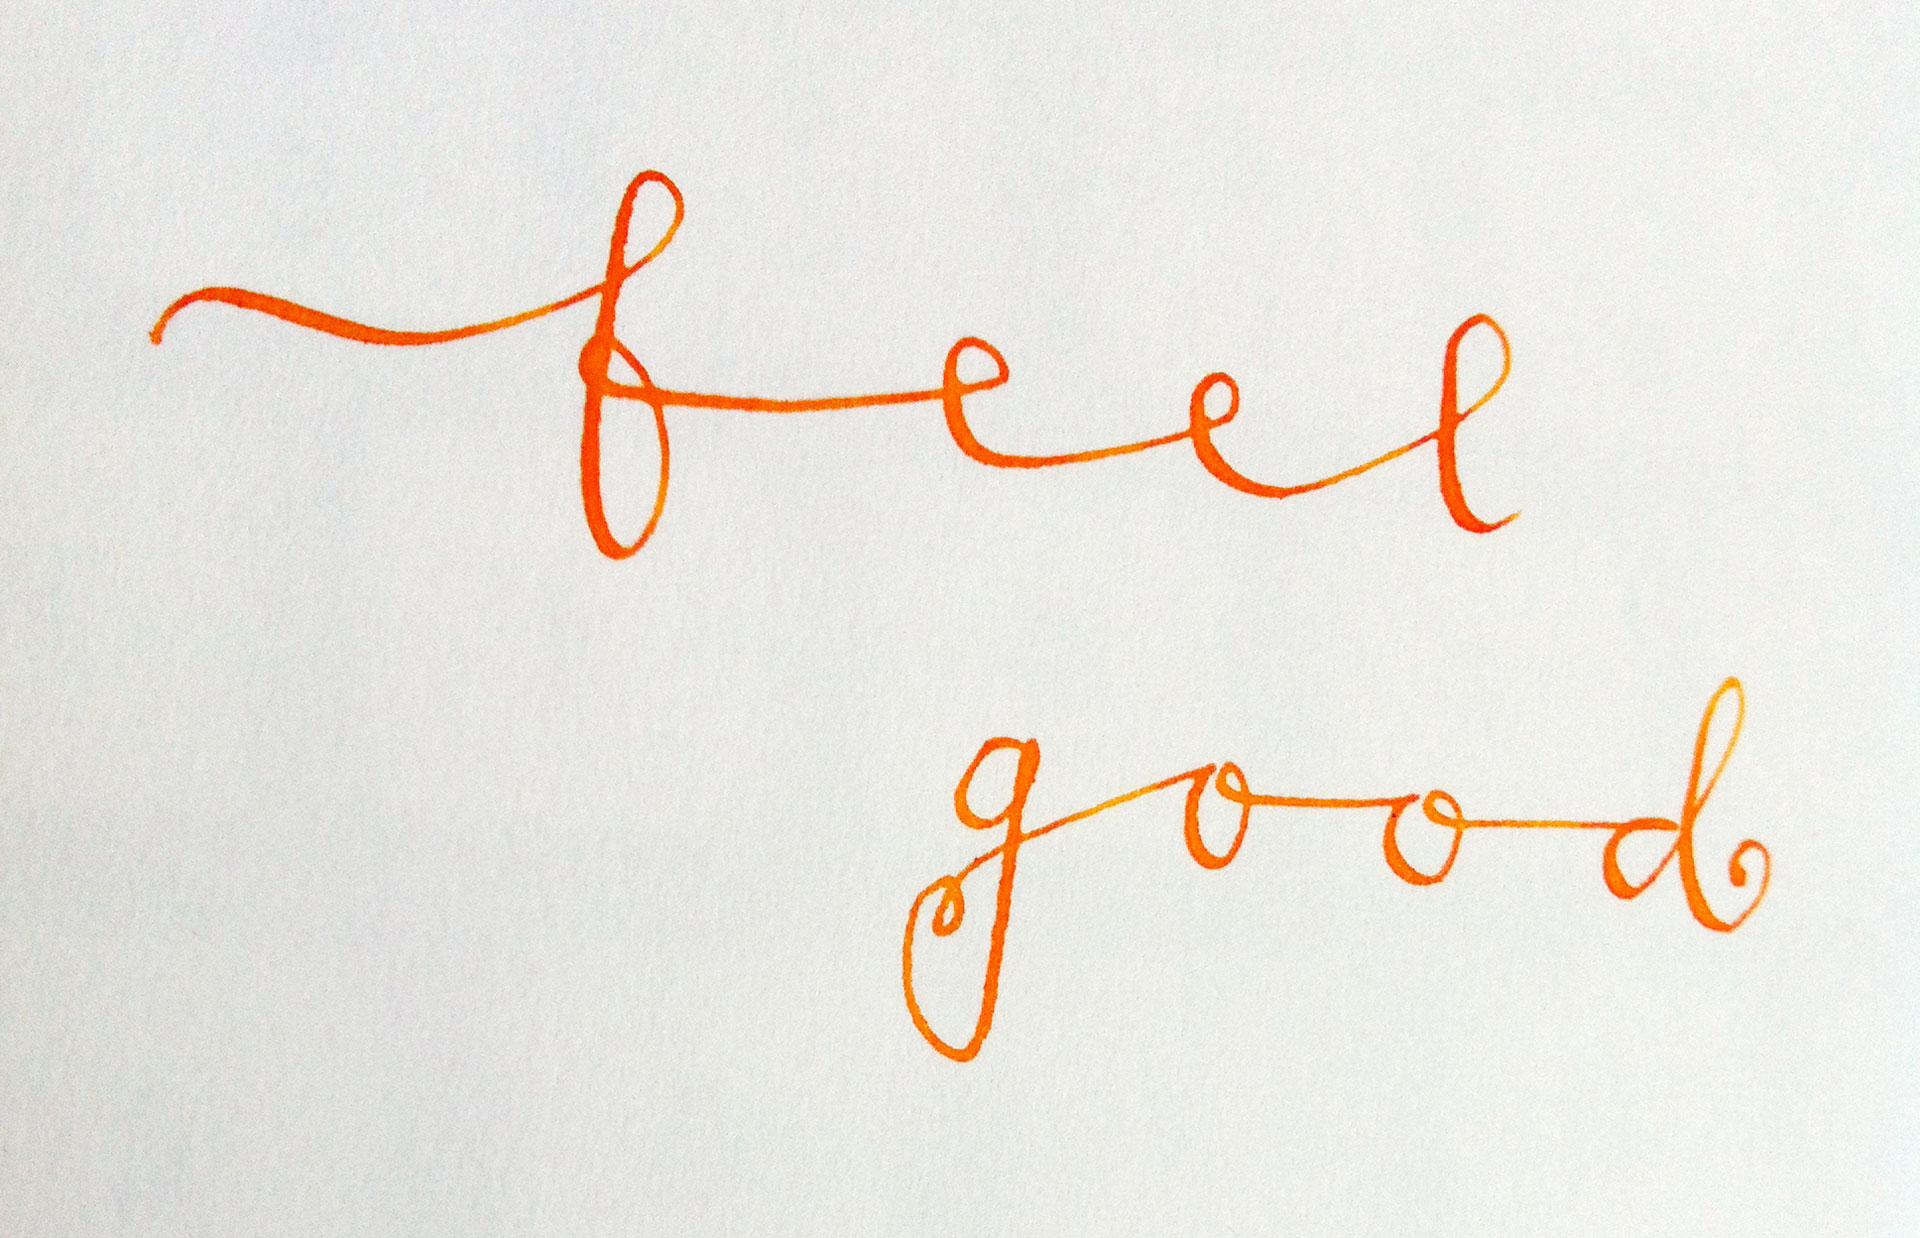 feel
good